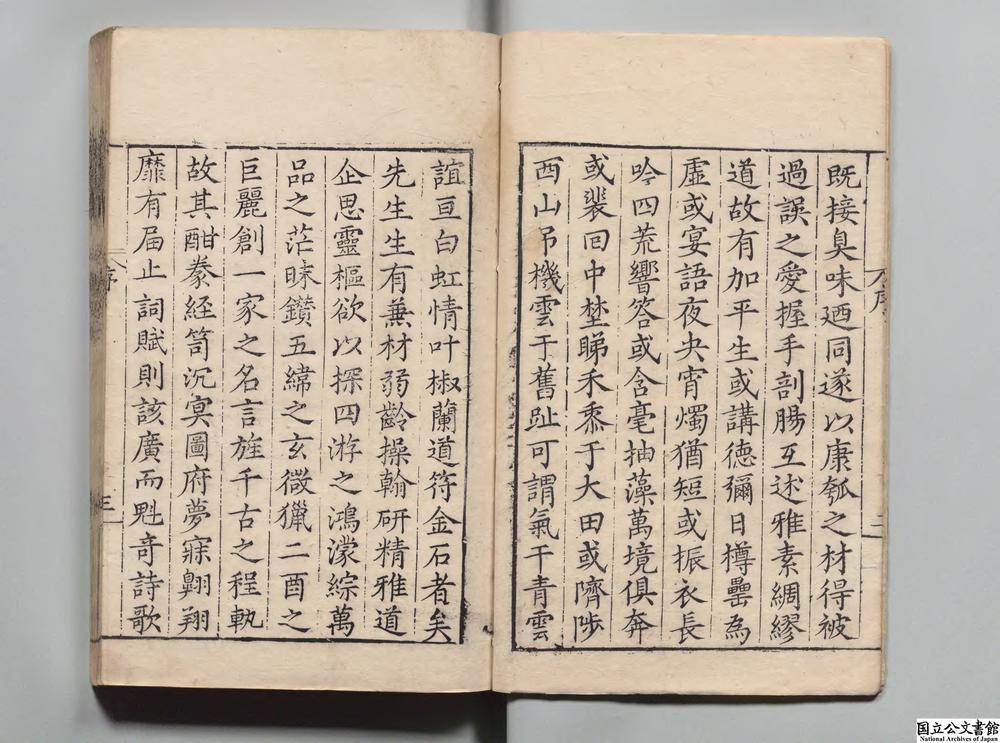 既接臭味廼同遂以康瓠之材得被
過誤之愛握手剖腸互述雅素綢繆
道故有加平生或講德彌日樽罍為
虛或宴語夜央宵燭猶短或振衣長
吟四荒響答或含毫抽藻萬境俱奔
或裴回中埜睇禾黍于大田或隮陟
西山吊機雲于舊趾可謂氣干青雲
誼亘白虹情叶椒蘭道符金石者矣
先生生有兼材弱齡操翰研精雅道
企思靈樞欲以探四游之鴻濛綜萬
品之茫昧鑽五緯之玄微獵二酉之
巨麗創一家之名言旌千古之程軌
故其酣豢經笥沉冥圖府夢寐翺翔
靡有届止詞賦則該廣而魁奇詩歌
序
三
国立公文書館
National Archives of Japan